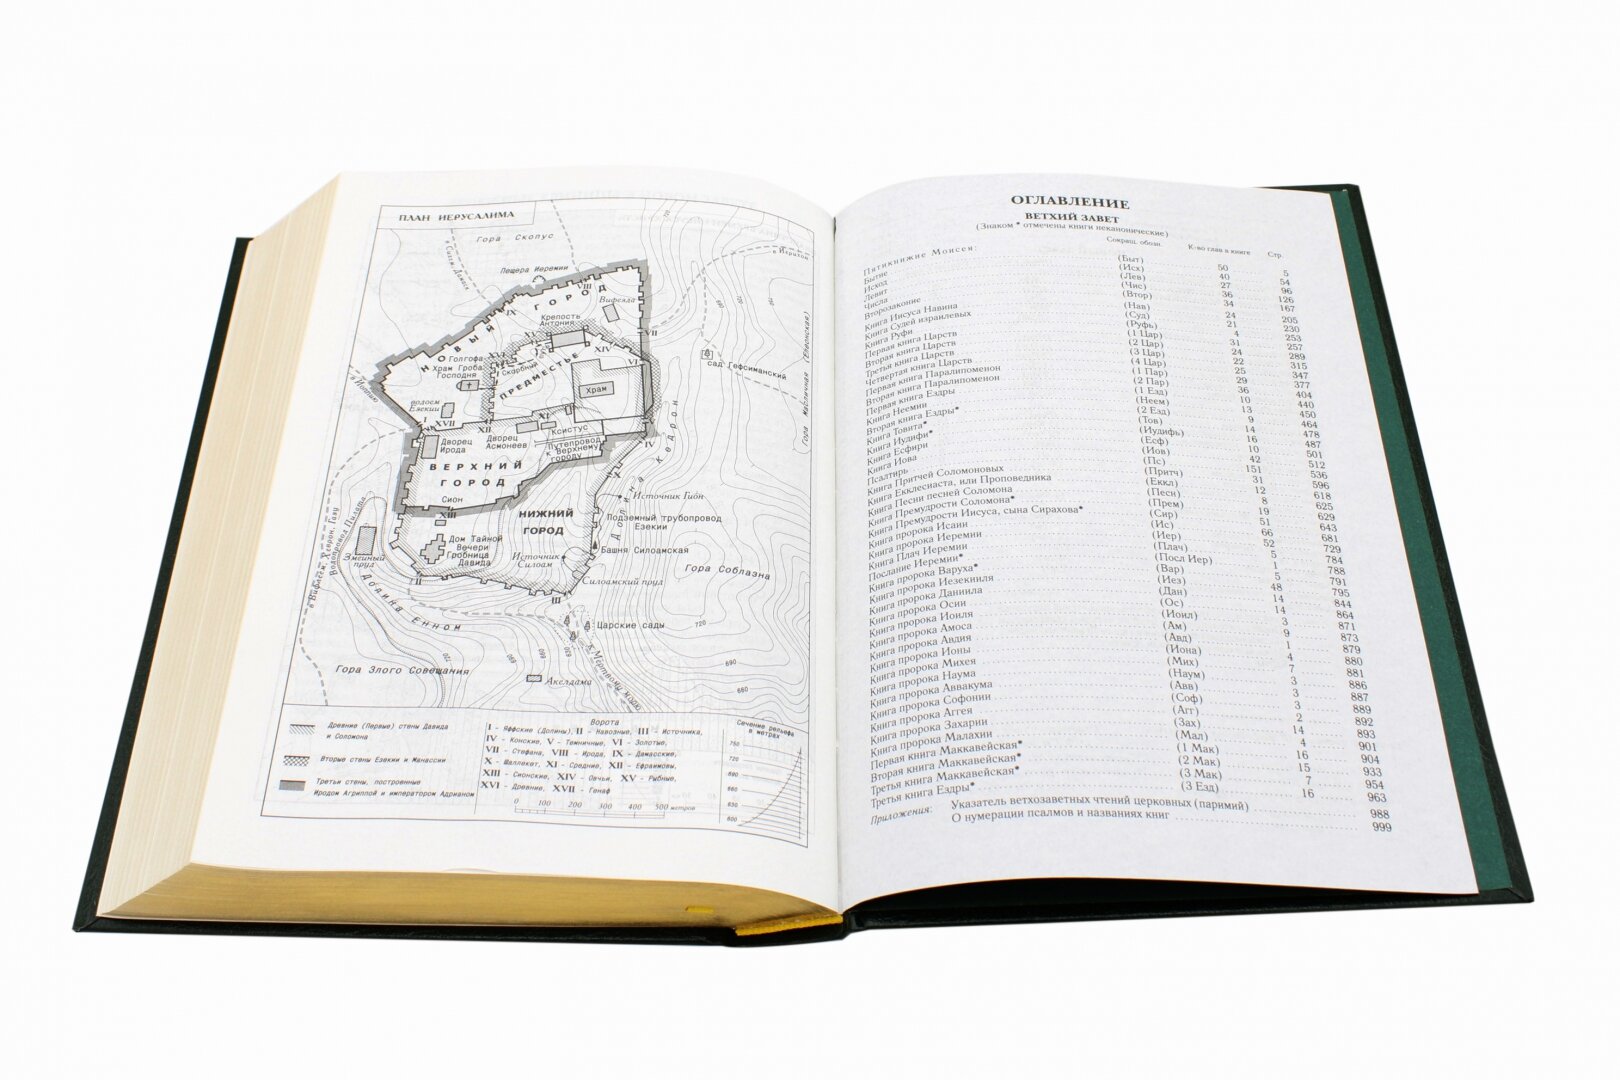 ПЛАН ИЕРУСАЛИМА
Гора Скопус
в Сихем, Дамаск
в Иерихон
Пещера Иеремии
VIII
НОВЫЙ ГОРОД
Вифезда
IX
Крепость
Антония
VII
XV
XIV
VI
XVI
Голгофа
Храм Гроба
Господня
Скорбный
ПРЕДМЕСТЬЕ
Храм
сад Гефсиманский
Гора Масличная (Елеонская)
в Иоппию
водоем
Езекии
I
XVII
XII
XI
Ксистус
Дворец
Ирода
Дворец
Асмонеев
Путепровод
к Верхнему
городу
IV
Долина Кедрон
ВЕРХНИЙ
ГОРОД
X
Сион
Источник Гион
XIII
НИЖНИЙ
ГОРОД
Подземный трубопровод
Езекии
Дом Тайной
Вечери
Гробница
Давида
Источник
Силоам
Башня Силоамская
Водопровод Пилата
в Вифлеем, Хеврон, Газу
Змеиный
пруд
Гора Соблазна
II
Силоамский пруд
III
Долина Енном
Царские сады
к Мертвому морю
Гора Злого Совещания
Акелдама
720
690
680
Древние (Первые) стены Давида
и Соломона
Вторые стены Езекии и Манассии
Третьи стены, построенные
Иродом Агриппой и императором Адрианом
Ворота
I - Яффские (Долины), II - Навозные, III - Источника,
IV - Конские, V - Темничные, VI - Золотые,
VII - Стефана, VIII - Ирода, IX - Дамасские,
X - Шаллекет, XI - Средние, XII - Ефраимовы,
XIII - Сионские, XIV - Овчьи, XV - Рыбные,
XVI - Древние, XVII - Генаф
0 100 200 300 400 500 метров
Сечение рельефа
в метрах
750
720
690
660
630
600
ОГЛАВЛЕНИЕ
ВЕТХИЙ ЗАВЕТ
(Знаком * отмечены книги неканонические)
Сокращ. обозн. К-во глав в книге Стр.
Пятикнижие Моисея:
Бытие (Быт) 50 5
Исход (Исх) 40 54
Левит (Лев) 27 96
Числа (Чис) 36 126
Второзаконие (Втор) 34 167
Книга Иисуса Навина (Нав) 24 205
Книга Судей израилевых (Суд) 21 230
Книга Руфи (Руфь) 4 253
Первая книга Царств (1 Цар) 31 257
Вторая книга Царств (2 Цар) 24 289
Третья книга Царств (3 Цар) 22 315
Четвертая книга Царств (4 Цар) 25 347
Первая книга Паралипоменон (1 Пар) 29 377
Вторая книга Паралипоменон (2 Пар) 36 404
Первая книга Ездры (1 Езд) 10 440
Книга Неемии (Неем) 13 450
Вторая книга Ездры* (2 Езд) 9 464
Книга Товита* (Тов) 14 478
Книга Иудифи* (Иудифь) 16 487
Книга Есфири (Есф) 10 501
Книга Иова (Иов) 42 512
Псалтирь (Пс) 151 536
Книга Притчей Соломоновых (Притч) 31 596
Книга Екклесиаста, или Проповедника (Еккл) 12 618
Книга Песни песней Соломона (Песн) 8 625
Книга Премудрости Соломона* (Прем) 19 629
Книга Премудрости Иисуса, сына Сирахова* (Сир) 51 643
Книга пророка Исаии (Ис) 66 681
Книга пророка Иеремии (Иер) 52 729
Книга Плач Иеремии (Плач) 5 784
Послание Иеремии* (Посл Иер) 1 788
Книга пророка Варуха* (Вар) 5 791
Книга пророка Иезекииля (Иез) 48 795
Книга пророка Даниила (Дан) 14 844
Книга пророка Осии (Ос) 14 864
Книга пророка Иоиля (Иоил) 3 871
Книга пророка Амоса (Ам) 9 873
Книга пророка Авдия (Авд) 1 879
Книга пророка Ионы (Иона) 4 880
Книга пророка Михея (Мих) 7 881
Книга пророка Наума (Наум) 3 886
Книга пророка Аввакума (Авв) 3 887
Книга пророка Софонии (Соф) 3 889
Книга пророка Аггея (Агг) 2 892
Книга пророка Захарии (Зах) 14 893
Книга пророка Малахии (Мал) 4 901
Первая книга Маккавейская* (1 Мак) 16 904
Вторая книга Маккавейская* (2 Мак) 15 933
Третья книга Маккавейская* (3 Мак) 7 954
Третья книга Ездры* (3 Езд) 16 963
Приложения: Указатель ветхозаветных чтений церковных (паримий) 988
О нумерации псалмов и названиях книг 999